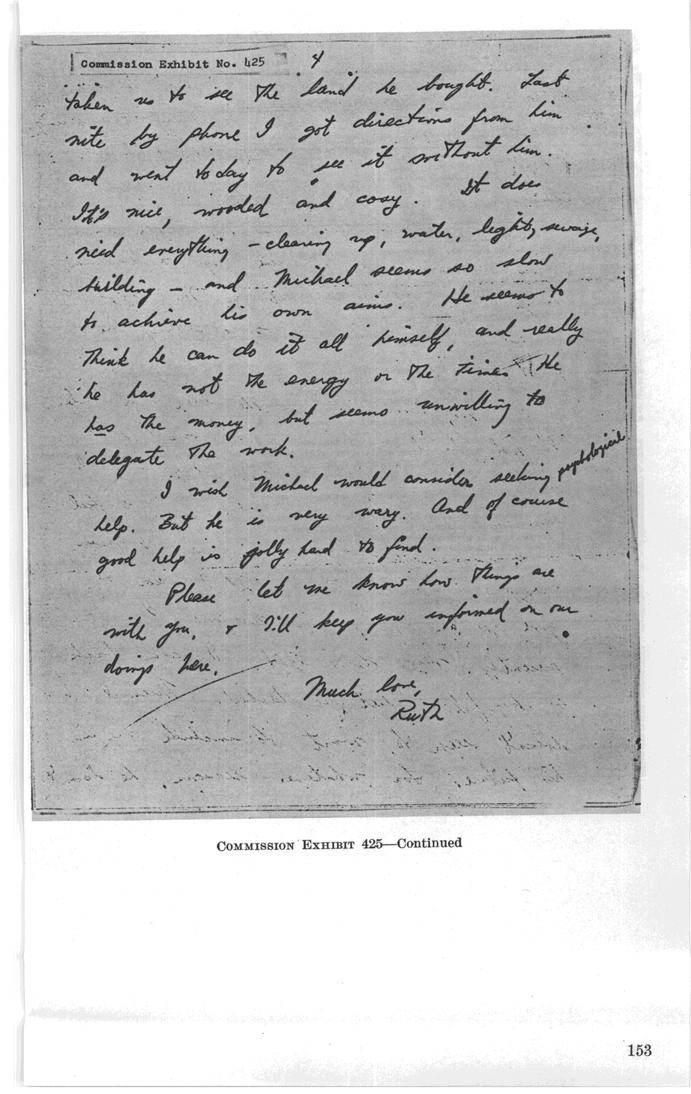 Commission Exhibit No. 425
4
taken us to see the land he bought. Last
nite by phone I got directions from him
and went today to see it without him.
It's nice, wooded and cosy. It does
need everything – clearing up, water, lights, sewage,
building – and Michael seems so slow
to achieve his own aims. He seems to
think he can do it all himself, and really
he has not the energy or the time. He
has the money, but seems unwilling to
delegate the work.
I wish Michael would consider seeking psychological
help. But he is very wary. And of course
good help is jolly hard to find.
Please let me know how things are
with you, & I'll keep you informed on our
doings here.
Much love,
Ruth
COMMISSION EXHIBIT 425—Continued
153